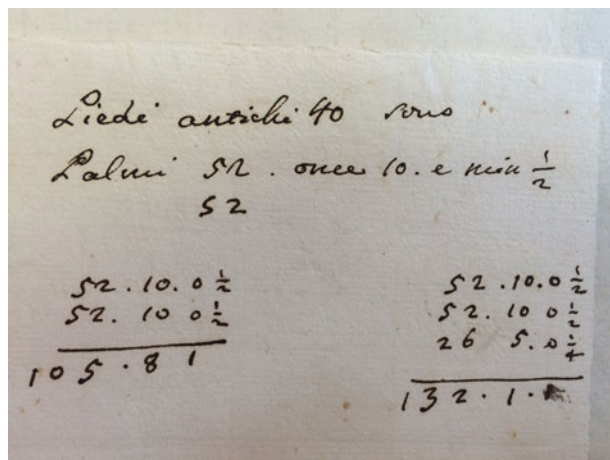 Piedi antichi 40 sono
Palmi 52. once 10. e min ½
52
52.10.0½
52. 10 0½
105.81
52.10.0½
52.10 0½
26 5.0¼
132.1.